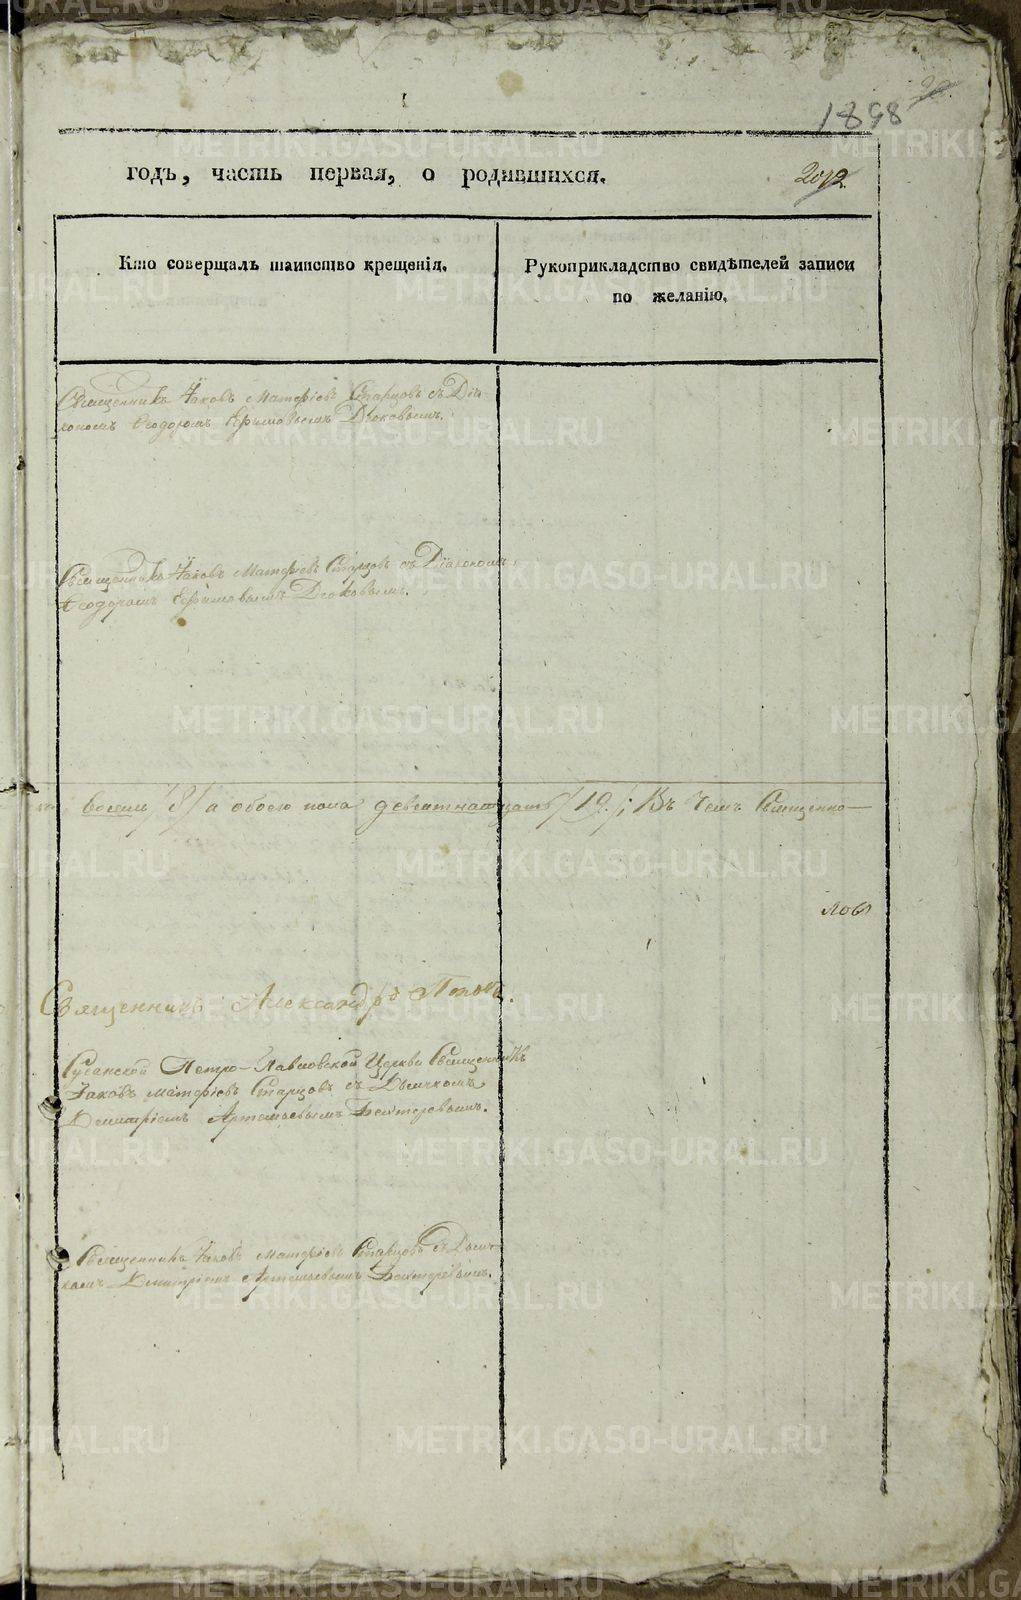 1898
годъ, часть первая, о родившихся.
Кто совершалъ таинство крещенія.
Рукоприкладство свидѣтелей записи
по желанію.
Священникъ Іаковъ Матѳіевъ Старцовъ съ Діа-
кономъ Ѳеодоромъ Ефимовымъ Дьяковымъ.
Священникъ Іаковъ Матѳіевъ Старцовъ съ Діакономъ
Ѳеодоромъ Ефимовымъ Дьяковымъ.
восемь /8/ а обоего пола девятнатцать /19./; Въ чемъ Священно-
ловъ
Священникъ Александръ Поповъ.
Сусанской Петро-Павловской Церкви Священникъ
Іаковъ Матѳіевъ Старцовъ съ Дьячкомъ
Димитріемъ Артемьевымъ Бехтеревымъ.
Священникъ Іаковъ Матѳіевъ Старцовъ съ Дьяч-
комъ Димитріемъ Артемьевымъ Бехтеревымъ.
METRIKI.GASO-URAL.RU